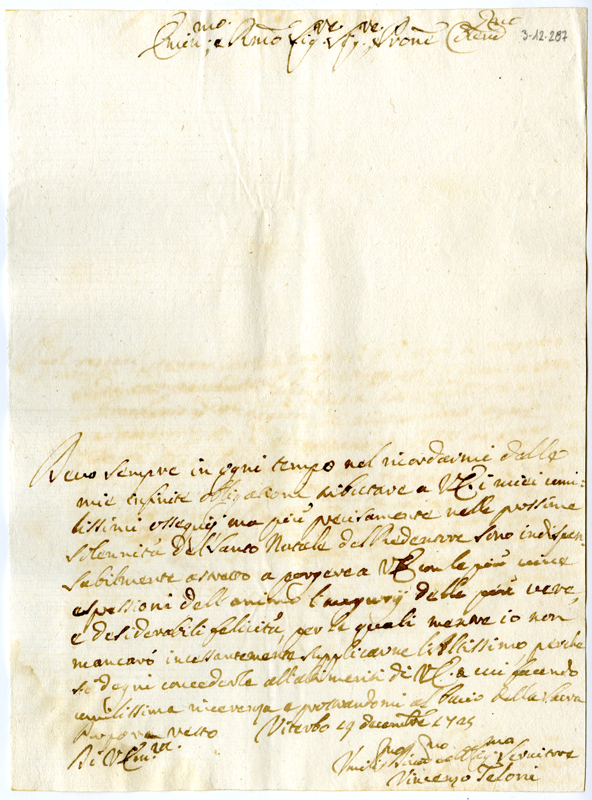 Emin:mo e Rmo Sig.re Sig.re Prone Colmo
3-12-287
Devo sempre in ogni tempo nel ricordarmi delle
mie infinite obligazioni tributare a VE. i miei umi-
lissimi ossequij ma più precisamente nelle prossime
solennità del Santo Natale del Redentore sono indispen-
sabilmente astretto a porgere a VE con le più vive
espressioni dell'animo l'augurij delle più vere,
e desiderabili felicità, per le quali mentre io non
mancarò incessantemente supplicarne l'Altissimo perche
si degni concederle all'alti meriti di VE. a cui facendo
umilissima riverenza e prostrandomi al bacio della Sacra
Porpora resto Viterbo 19 decembre 1725
Di VEm.za
Umilis.mo Servitore
Vincenzo Teloni